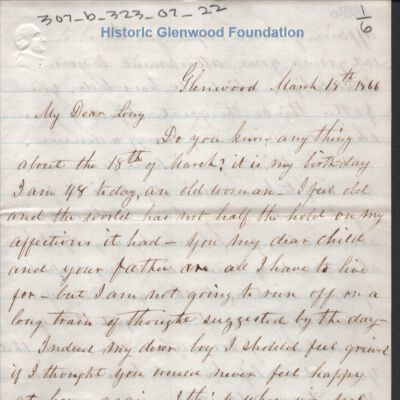 307-b-323-07-22
1/6
Historic Glenwood Foundation
Glenwood March 18th 1866
My Dear Lony
Do you know any thing
about the 18th of March? it is my birthday
I am 48 today, an old woman - I feel old
and the world has not half the hold on my
affections it had - you my dear child
and your father are all I have to live
for - but I am not going to run off on a
long train of thought suggested by the day -
Indeed my dear boy I should feel grieved
if I thought you would never feel happy
at home again. I